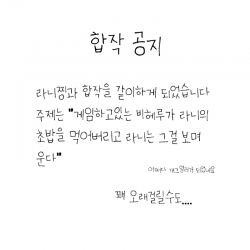 합작 공지
라니찡과 합작을 같이하게 되었습니다
주제는 "게임하고있는 비헤루가 라니의
초밥을 먹어버리고 라니는 그걸 보며
운다"
개그합작이 되었네요
꽤 오래걸릴수도....